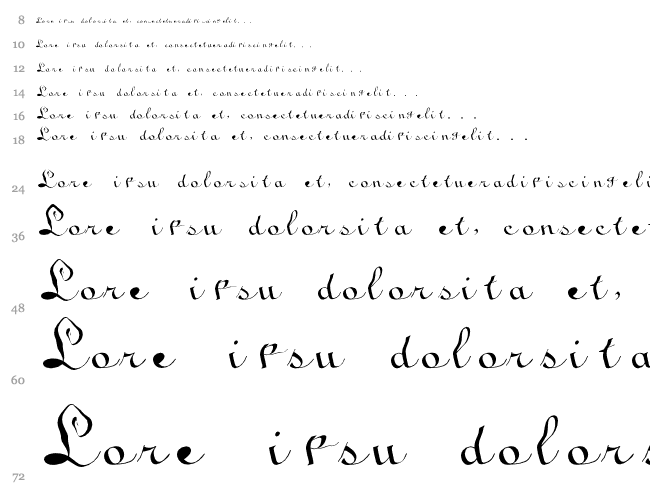 8 Lore ipsu dolorsita et, consectetueradipiscingelit...
10 Lore ipsu dolorsita et, consectetueradipiscingelit...
12 Lore ipsu dolorsita et, consectetueradipiscingelit...
14 Lore ipsu dolorsita et, consectetueradipiscingelit...
16 Lore ipsu dolorsita et, consectetueradipiscingelit...
18 Lore ipsu dolorsita et, consectetueradipiscingelit...
24 Lore ipsu dolorsita et, consectetueradipiscingeli
36 Lore ipsu dolorsita et, consectet
48 Lore ipsu dolorsita et,
60 Lore ipsu dolorsita
72 Lore ipsu dolors